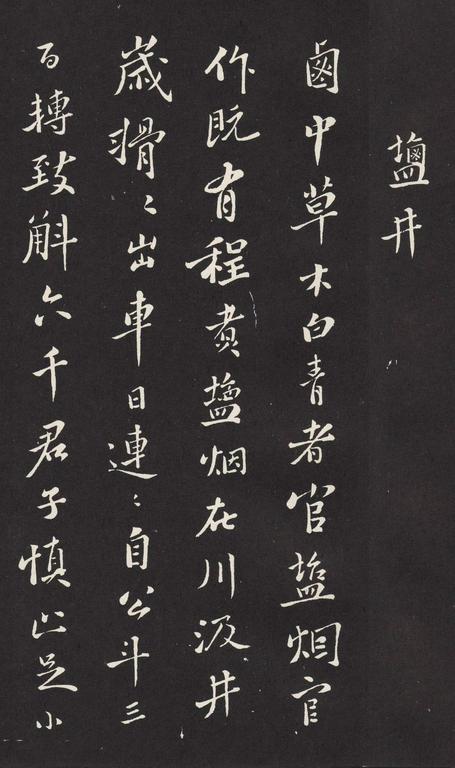 鹽井
鹵中草木白青者官塩烟官
作既有程煮塩烟在川汲井
歲搰〻出車日連〻自公斗三
百轉致斛六千君子慎止足小